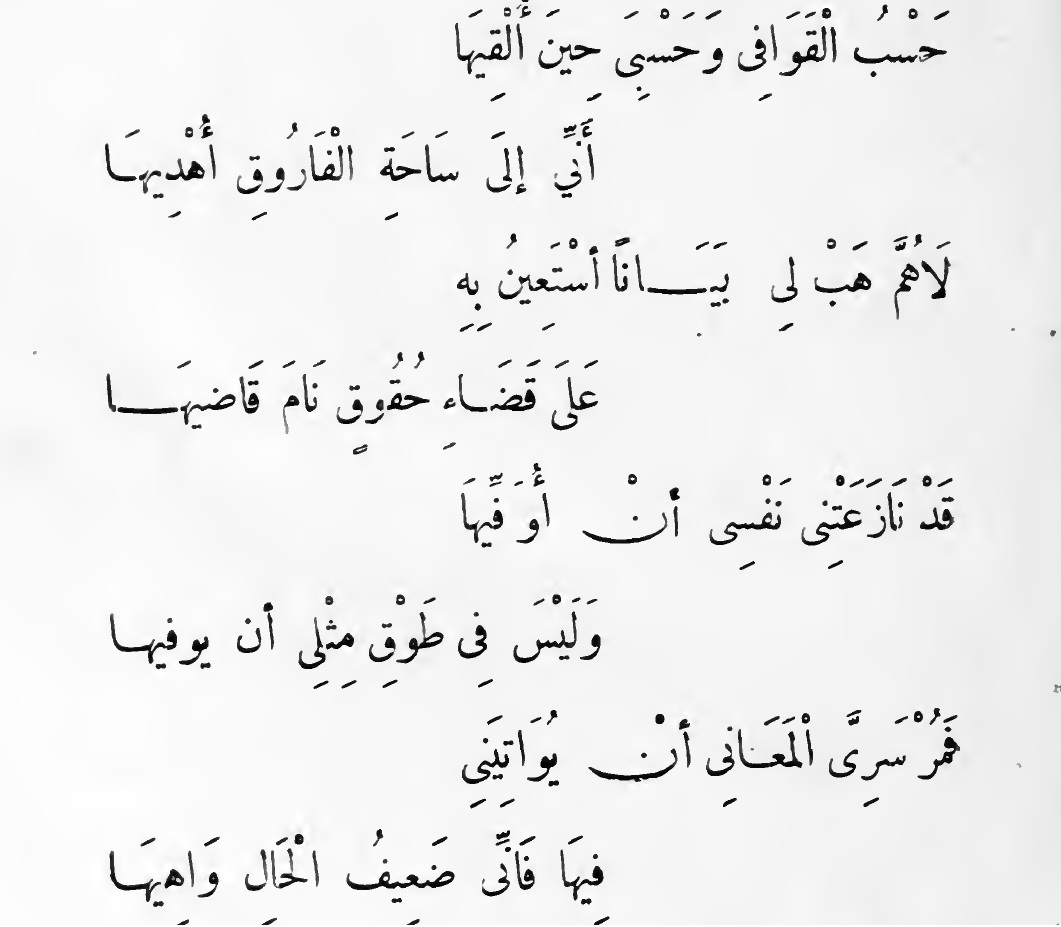 حَسْبُ الْقَوَافِى وَحَسْبِى حِينَ أُلْقِيهَا
أَنِّي إِلَى سَاحَةِ الْفَارُوقِ أُهْدِيهَا
لَاهُمَّ هَبْ لِي بَيَانًا أسْتَعِينُ بِهِ
عَلَى قَضَاءِ حُقُوقٍ نَامَ قَاضِيهَا
قَدْ نَازَعَتْنِى نَفْسِى أنْ أُوَفِّيهَا
وَلَيْسَ فِى طَوْقِ مِثْلِي أن يوفيها
فَمُرْ سَرِىَّ الْمَعَانِى أنْ يُوَاتِيَنِي
فِيهَا فَانِّى ضَعِيفُ الْحَالِ وَاهِيهَا